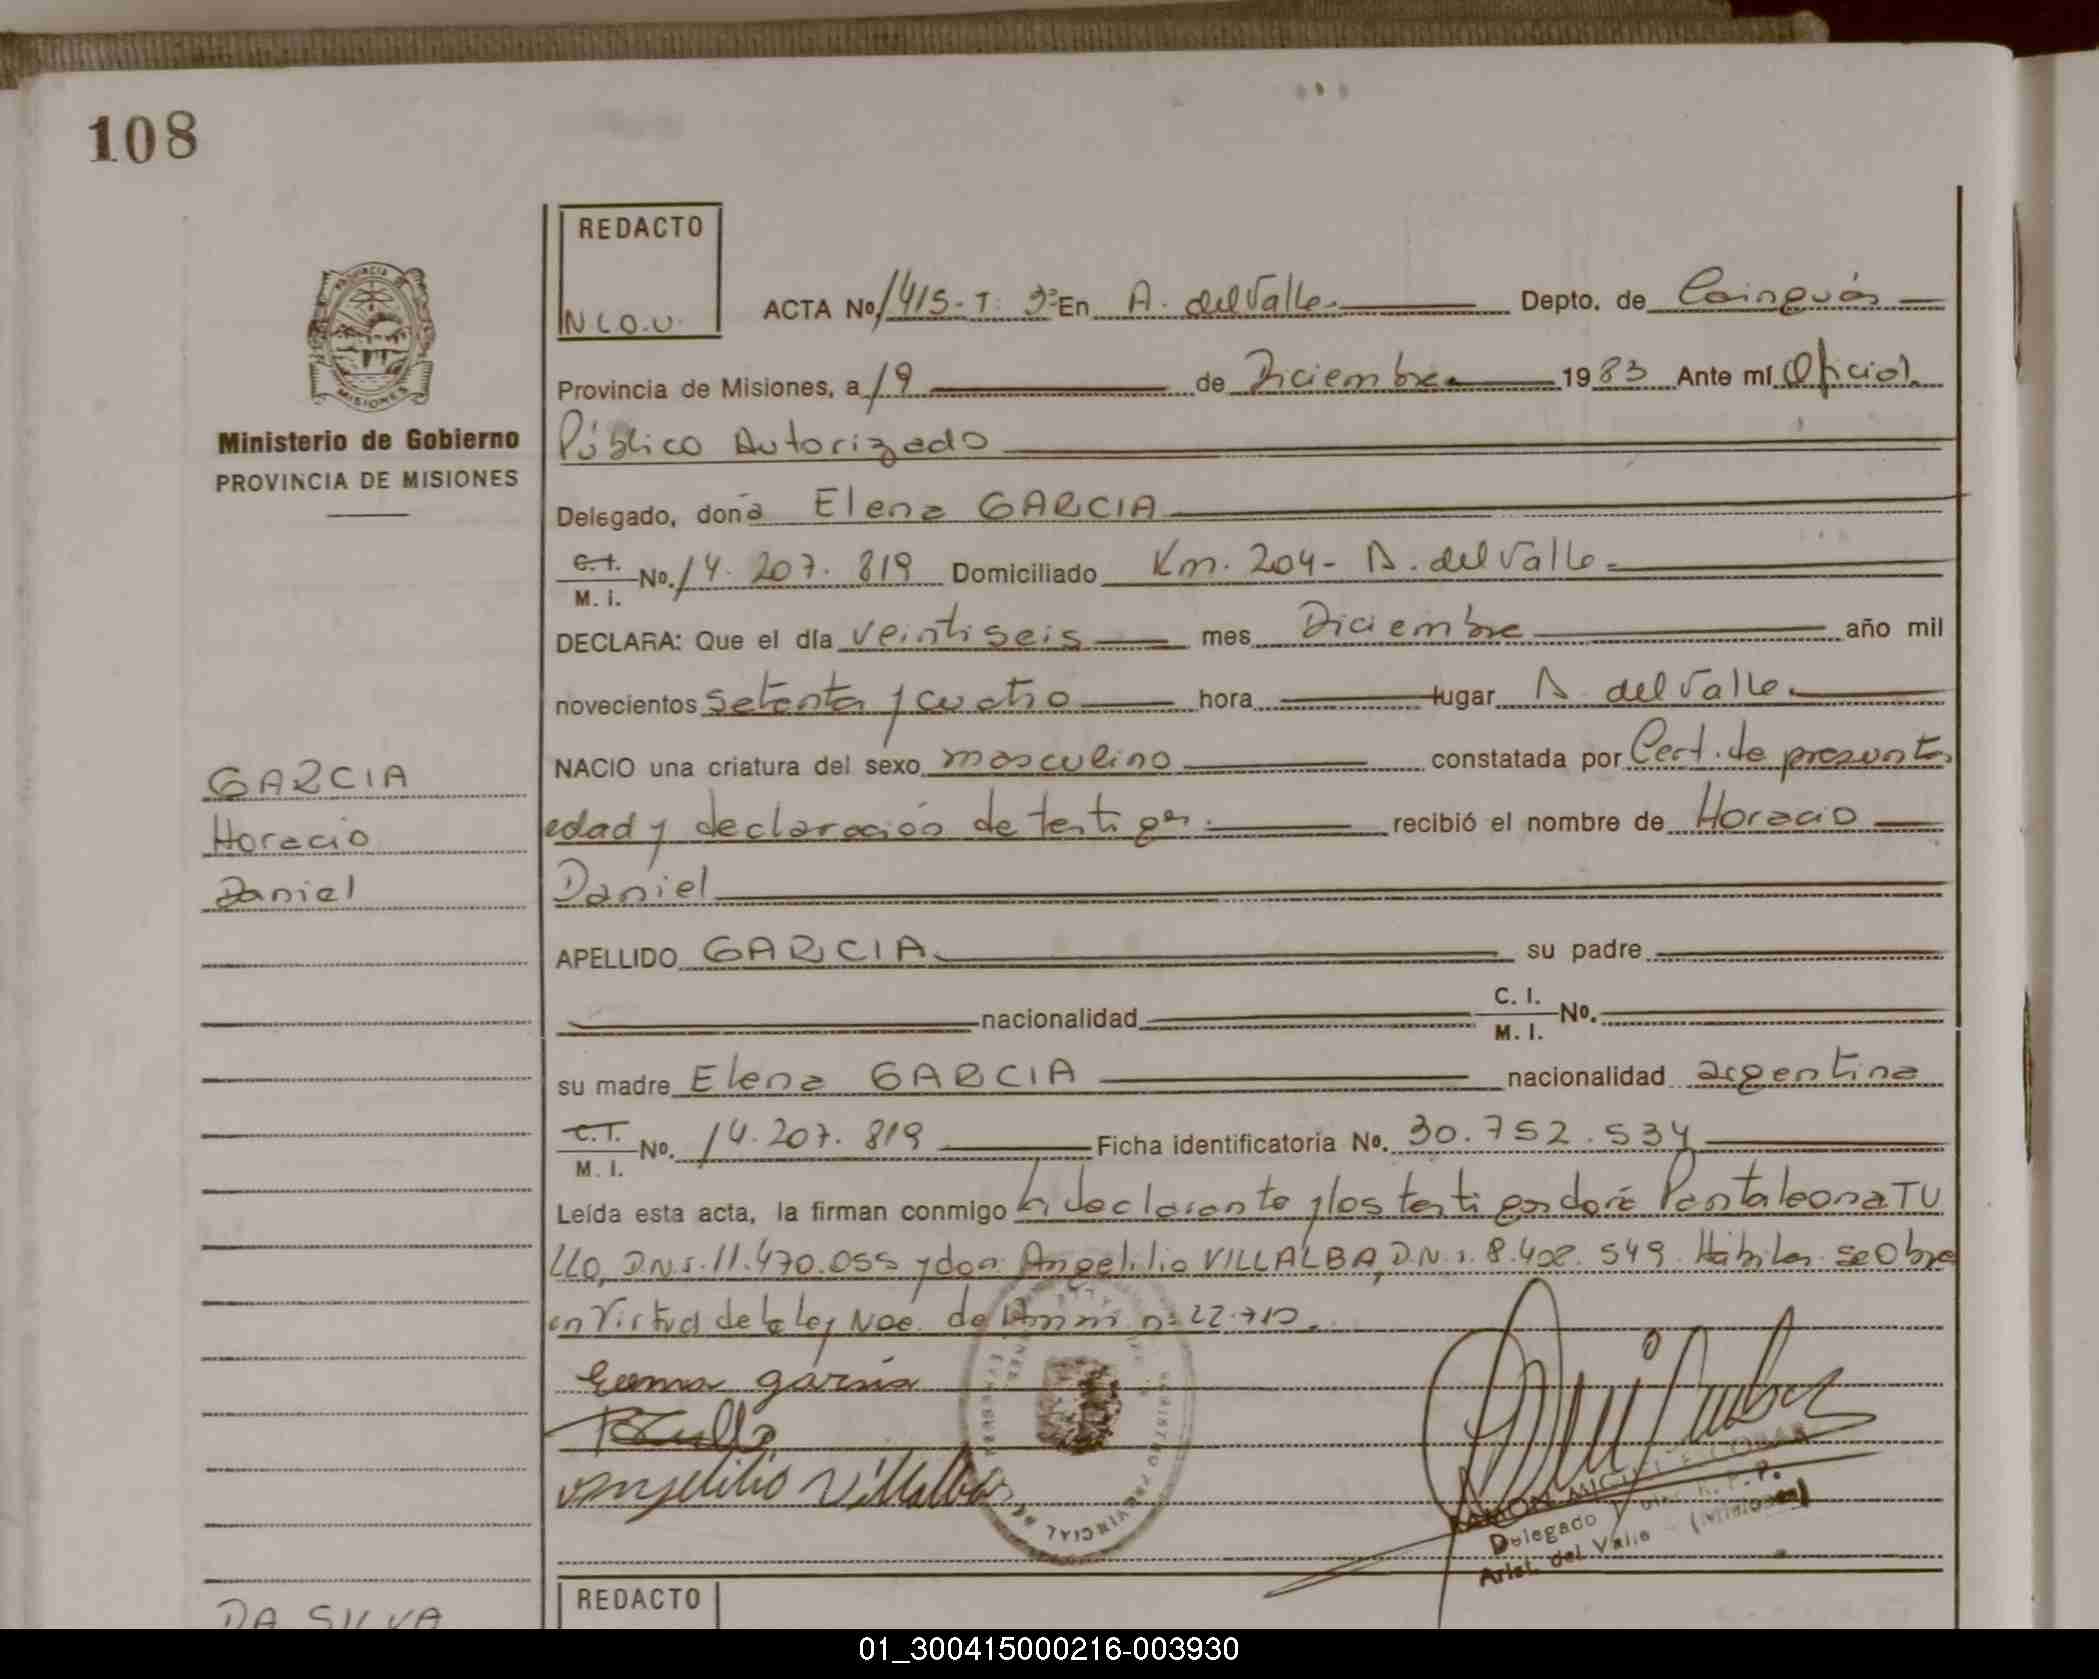 108
REDACTO
N L O. U.
ACTA No 1415-T. 3º En A. del Valle. Depto. de Cainguás
PROVINCIA
MISIONES
Provincia de Misiones, a 19 de Diciembre 1983 Ante mí Oficial
Ministerio de Gobierno
PROVINCIA DE MISIONES
Público Autorizado
Delegado, doña Elena GARCIA
C.I. M. I. No. 14. 207. 819 Domiciliado Km. 204- A. del Valle
DECLARA: Que el día veintiseis mes Diciembre año mil
novecientos setenta y cuatro hora lugar A. del Valle.
NACIO una criatura del sexo masculino constatada por Cert. de presunta
edad y declaración de testigos. recibió el nombre de Horacio
Daniel
GARCIA
Horacio
Daniel
APELLIDO GARCIA su padre
nacionalidad C. I. M. I. No.
su madre Elena GARCIA nacionalidad argentina
C.I. M. I. No. 14.207. 819 Ficha identificatoria No. 30.752.534
Leída esta acta, la firman conmigo la declarante y los testigos doña Pantaleona TU
LLO, D.N.I. 11.470.055 y don Angelilio VILLALBA, D.N.I. 8.402. 549 Hábiles. se Obra
en Virtud de la ley Nac. de 22.712.
garcia
Angelilio Villalba
REGISTRO PROVINCIAL DE
RAMON MIGUEL ESCOBAR
Delegado R. P. P.
Arist. del Valle - (Misiones)
REDACTO
DA SILVA
01_300415000216-003930